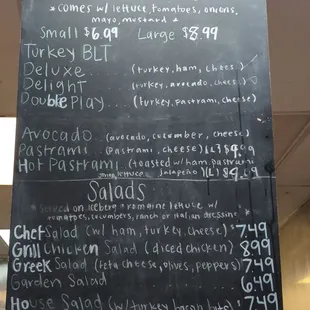 * comes w/ lettuce, tomatoes, onions,
mayo, mustard *
Small $6.99 Large $8.99
Turkey BLT
Deluxe... (turkey, ham, chees.)
Delight (turkey, avocado, chees.)
Double Play... (turkey, pastrami, cheese)
Avocado. (avocado, cucumber, cheese)
Pastrami.. (Pastrami, cheese)
Hot Pastrami (toasted w/ ham, pastrami
lettuce Jalapeño) (L) $9.09
Salads
served on iceberg + romaine lettuce w/
tomatoes, cucumbers, ranch or italian dressing
Chef Salad (w/ ham, turkey, cheese) $7.49
Grill Chicken Salad (diced chicken) 8.99
Greek Salad (feta cheese, olives, peppers) 7.49
Garden Salad 6.49
House Salad (w/ turkey bacon bits) $7.49